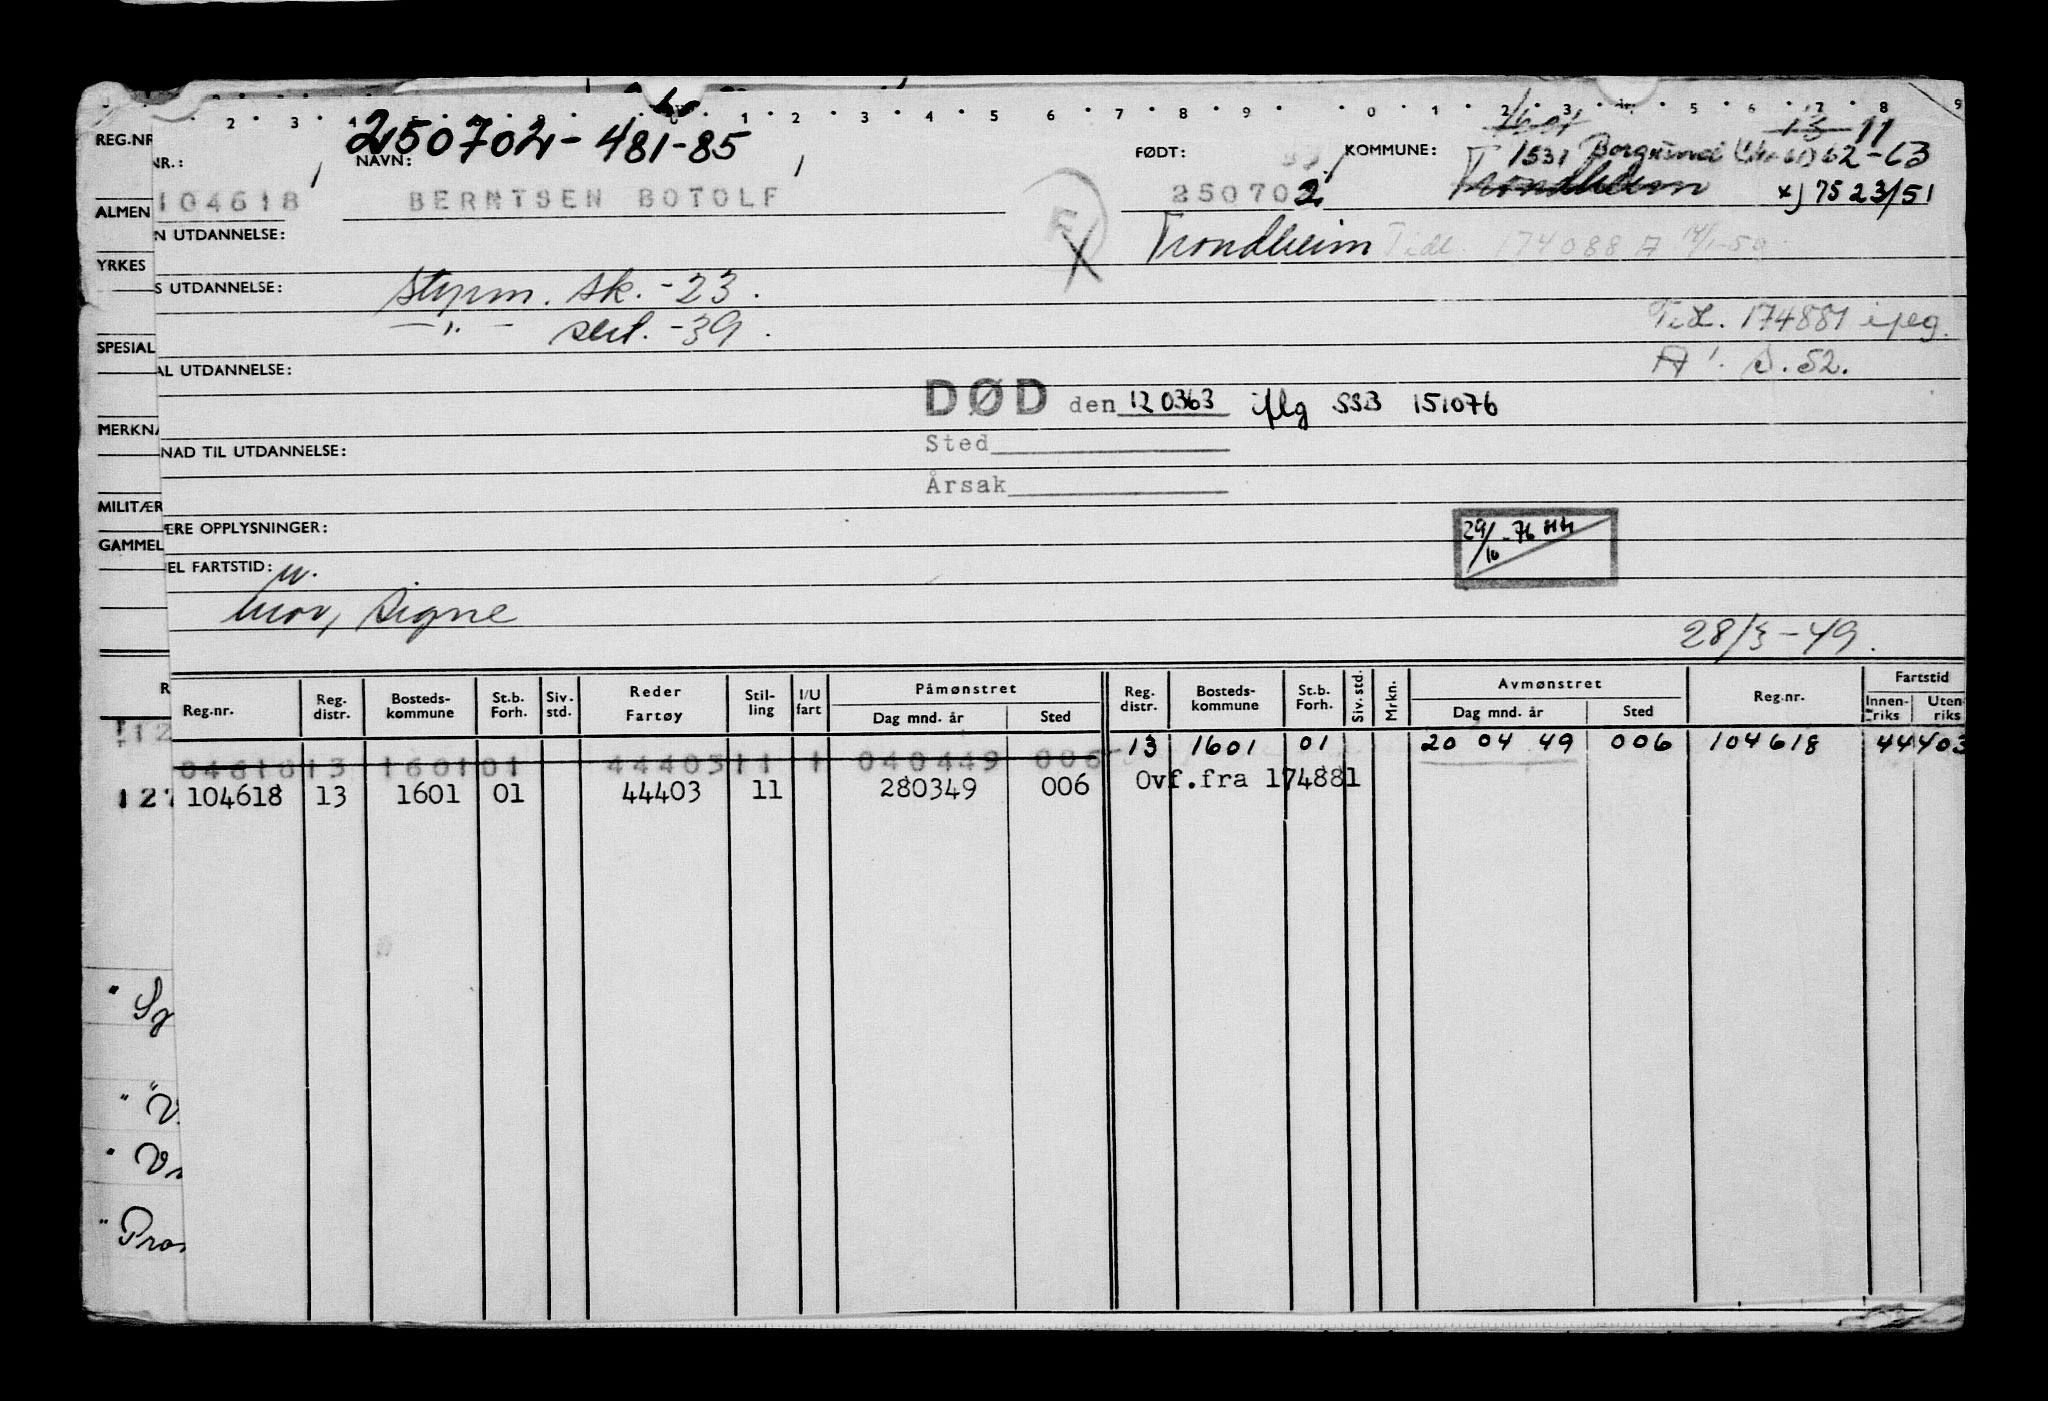 2 3 4 1 2 3 4 5 6 7 8 9 0 1 2 3 4 5 6 7 8 9
250702 - 481-85
REG.NR
NR.:
NAVN:
FØDT:
KOMMUNE:
1531 Borgund 62-63
13 11
104618 BERNTSEN BOTOLF 250702 Trondheim x) 7523/51
ALMEN
N UTDANNELSE:
Trondheim Tidl. 174088 A 14/1-50
YRKES
S UTDANNELSE:
styrm. sk. -23.
—"— sert. -39.
Tidl. 174881 ifølg.
A'. S. 52.
SPESIAL
AL UTDANNELSE:
DØD den 120363 iflg SSB 151076
MERKNA
NAD TIL UTDANNELSE:
Sted
Årsak
MILITÆR
ÆRE OPPLYSNINGER:
29/10-76
GAMMEL
EL FARTSTID:
u.
mor, Signe
28/3-49.
R
Reg.nr. Reg. distr. Bosteds-kommune St.b. Forh. Siv. std. Reder Fartøy Stil-ling I/U fart Påmønstret Dag mnd. år Sted Reg. distr. Bosteds-kommune St.b. Forh. Siv. std. Mrkn. Avmønstret Dag mnd. år Sted Reg.nr. Fartstid Innen-riks Uten-riks
13 1601 01 20 04 49 006 104618 44403
04618 13 1601 01 44403 11 1 040449 006
104618 13 1601 01 44403 11 280349 006 Ovf.fra 174881
127
" Sg
" V
" Vi
" Pros